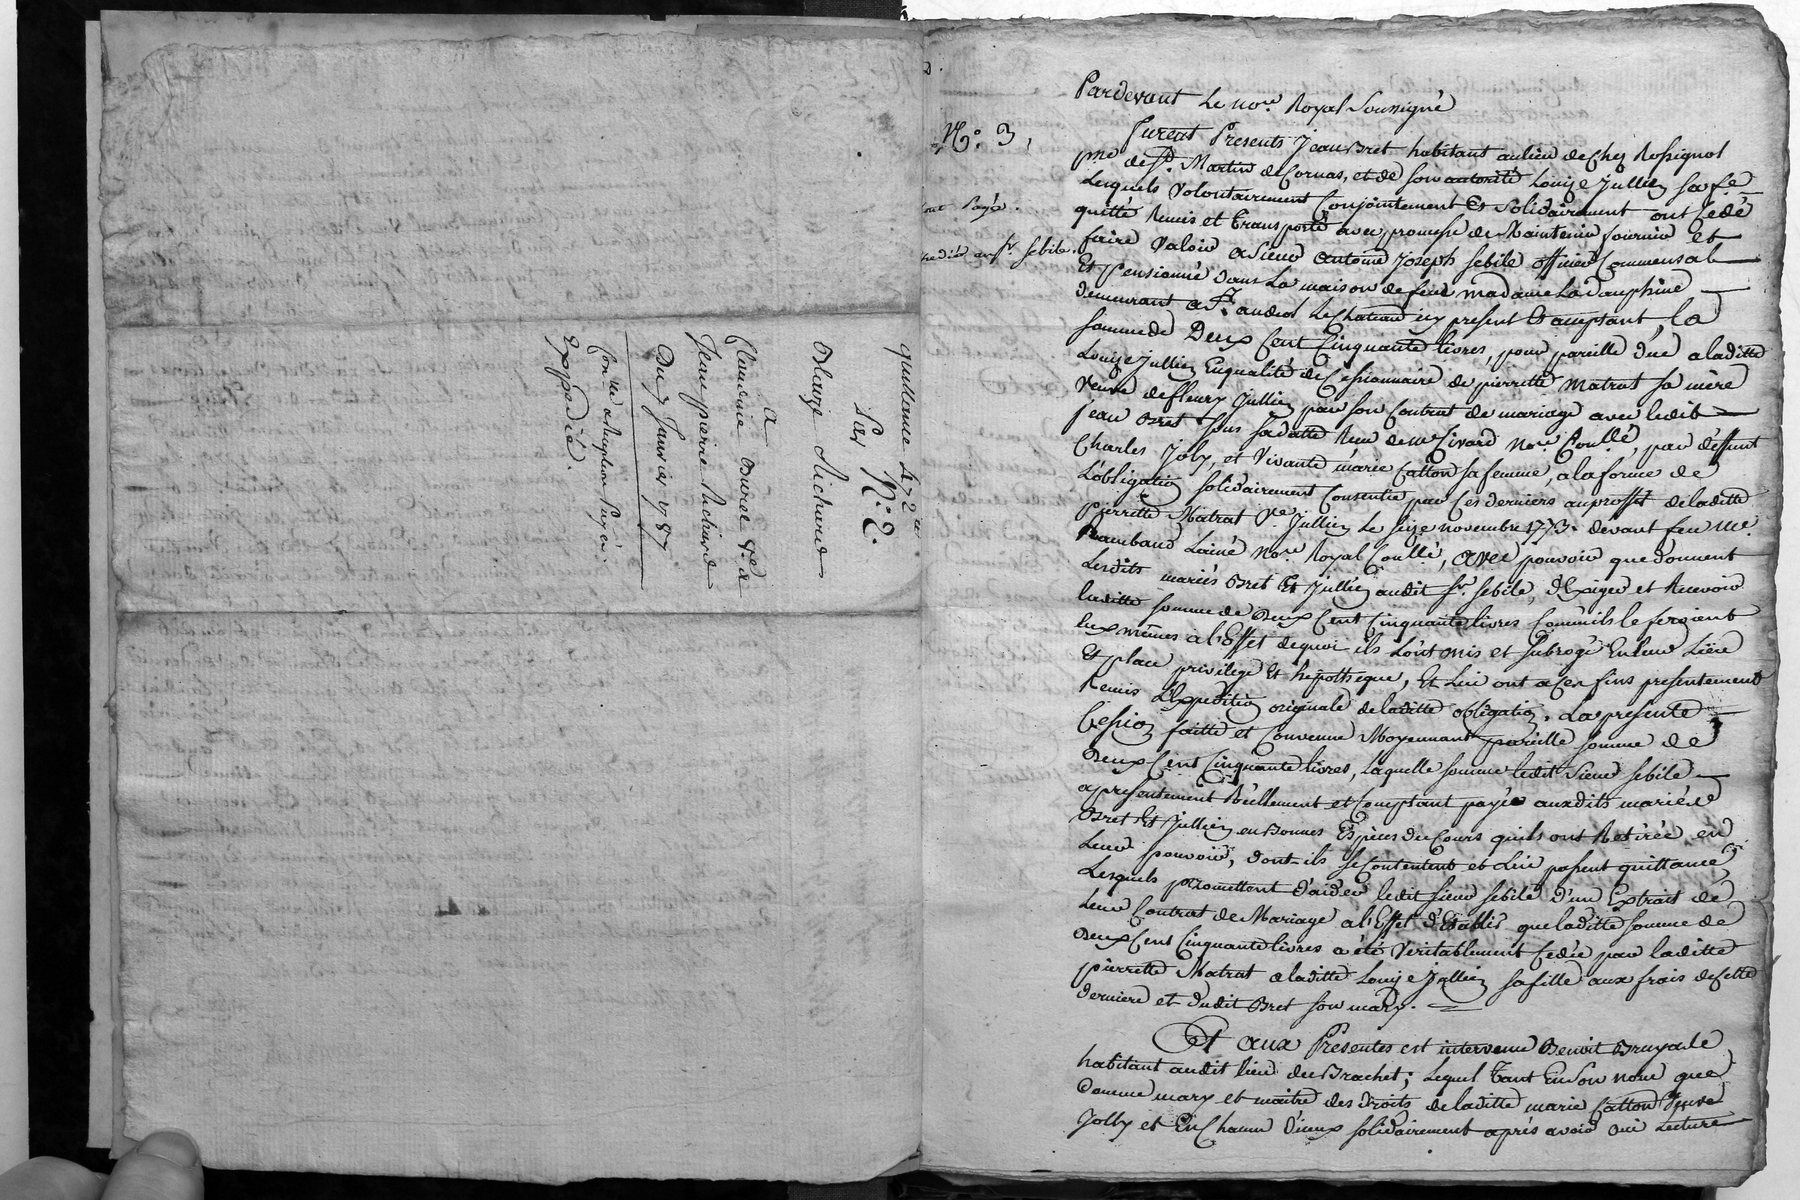 quittance 472ᵗᵗ
N.º 2.
Par
Blaise Michaud
a
Claudine Burel Vᵉ. de
Jean pierre Richard
Du 7 Janvier 1787
Con.lle et ampliaon Payés.
Expedié.
Pardevant Le no.re Royal Soussigné
N.º 3,
Furent Presents Jean Bret habitant au lieu de Chez Rossignol
pss.e de S.t Martin de Cornas, et de son autorité Louize Jullien sa fe.
Lesquels Volontairement Conjointement Et Solidairement ont Cedé
tout Payé.
quitté Remis et transporté avec promesse de Maintenir fournir et
faire Valoir a Sieur Antoine Joseph Sebile officier Commensal
expedié au s.r Sebile.
Et Pensionné dans La maison de feüe madame La Dauphine
demeurant a S.t andeol Le Chateau icy present Et acceptant, la
somme de Deux Cent Cinquante livres, pour pareille düe a laditte
Louize Jullien En qualité de Cessionnaire de pierrette Matrat sa mère
Veuve de fleury Jullien par son Contrat de mariage avec ledit
jean Bret sous sa datte Recu de me Civard No.re Con.lle, par deffunt
Charles Joly, et Vivante marie Catton sa femme, a la forme de
L'obligation solidairement Consentie par Ces derniers au proffit de laditte
Pierrette Matrat V.e Jullien Le seize novembre 1773. devant feu me.
Rambaud Lainé No.re Royal Con.lle, avec pouvoir que donnent
Lesdits mariés Bret Et Jullien audit S.r Sebile, d'Exiger et Recevoir
laditte somme de Deux Cent Cinquante livres Comm'ils le feroient
Eux mêmes a l'Effet dequoi ils L'ont mis et subrogé En leur Lieu
Et place privilege Et hipotheque, Et Lui ont a Ces fins presentement
Remis L'Expedition originale de laditte obligation. La presente
Cession faitte et Convenue Moyennant pareille somme de
Deux Cent Cinquante livres, laquelle somme ledit Sieur Sebile
a presentement Réellement et Comptant payée auxdits mariés
Bret Et Jullien en Bonnes Espèces du Cours qu'ils ont Retirée en
Leur pouvoir, dont ils se Contentent et Lui passent quittance,
Lesquels promettent d'aider ledit sieur Sebile d'un Extrait de
Leur Contrat de Mariage a l'Effet d'Etablir que laditte somme de
Deux Cent Cinquante livres a été Veritablement Cedée par laditte
pierrette Matrat a laditte Louize Jullien sa fille aux frais de Cette
derniere et dudit Bret son mary.
Et aux Presentes est intervenu Benoit Bruyale
habitant audit lieu du Brachet; Lequel tant En son nom que
Comme mary et maitre des droits de laditte marie Catton Veuve
Jolly et En Chacun d'ieux solidairement après avoir oui Lecture